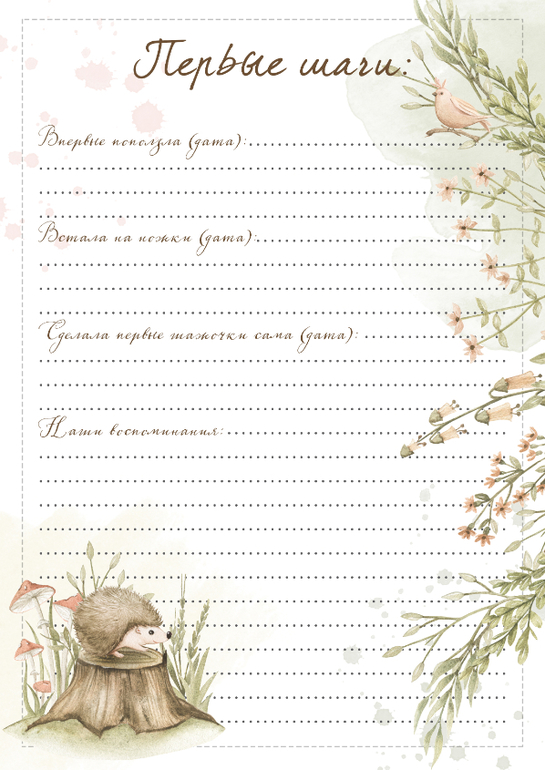 Первые шаги:
Впервые поползла (дата):
Встала на ножки (дата):
Сделала первые шажочки сама (дата):
Наши воспоминания: